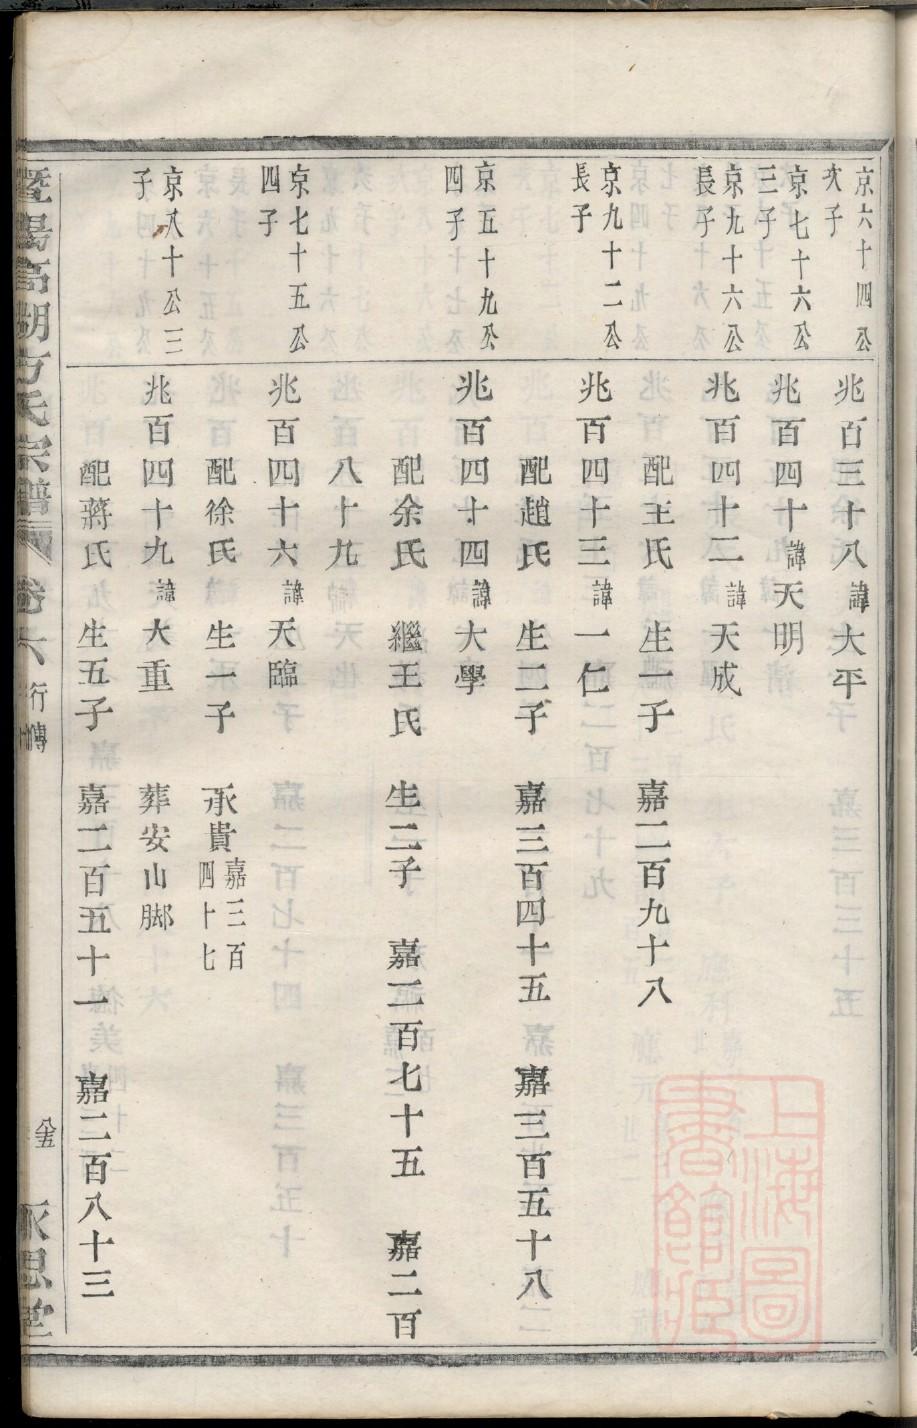 京六十四公
次子
兆百三十八諱大平
京七十六公
三子
兆百四十諱天明
京九十六公
長子
兆百四十二諱天成
配王氏 生一子 嘉二百九十八
京九十二公
長子
兆百四十三諱一仁
配趙氏 生二子 嘉三百四十五 嘉三百五十八
京五十九公
四子
兆百四十四諱大學
配余氏 繼王氏 生二子 嘉二百七十五 嘉二百
八十九
京七十五公
四子
兆百四十六諱天臨
配徐氏 生一子 承貴嘉三百
四十七
京八十公三
子
兆百四十九諱大重 葬安山脚
配蔣氏 生五子 嘉二百五十一 嘉二百八十三
暨陽高湖方氏宗譜 卷六 行傳 八五 永思堂
上海圖
書館藏